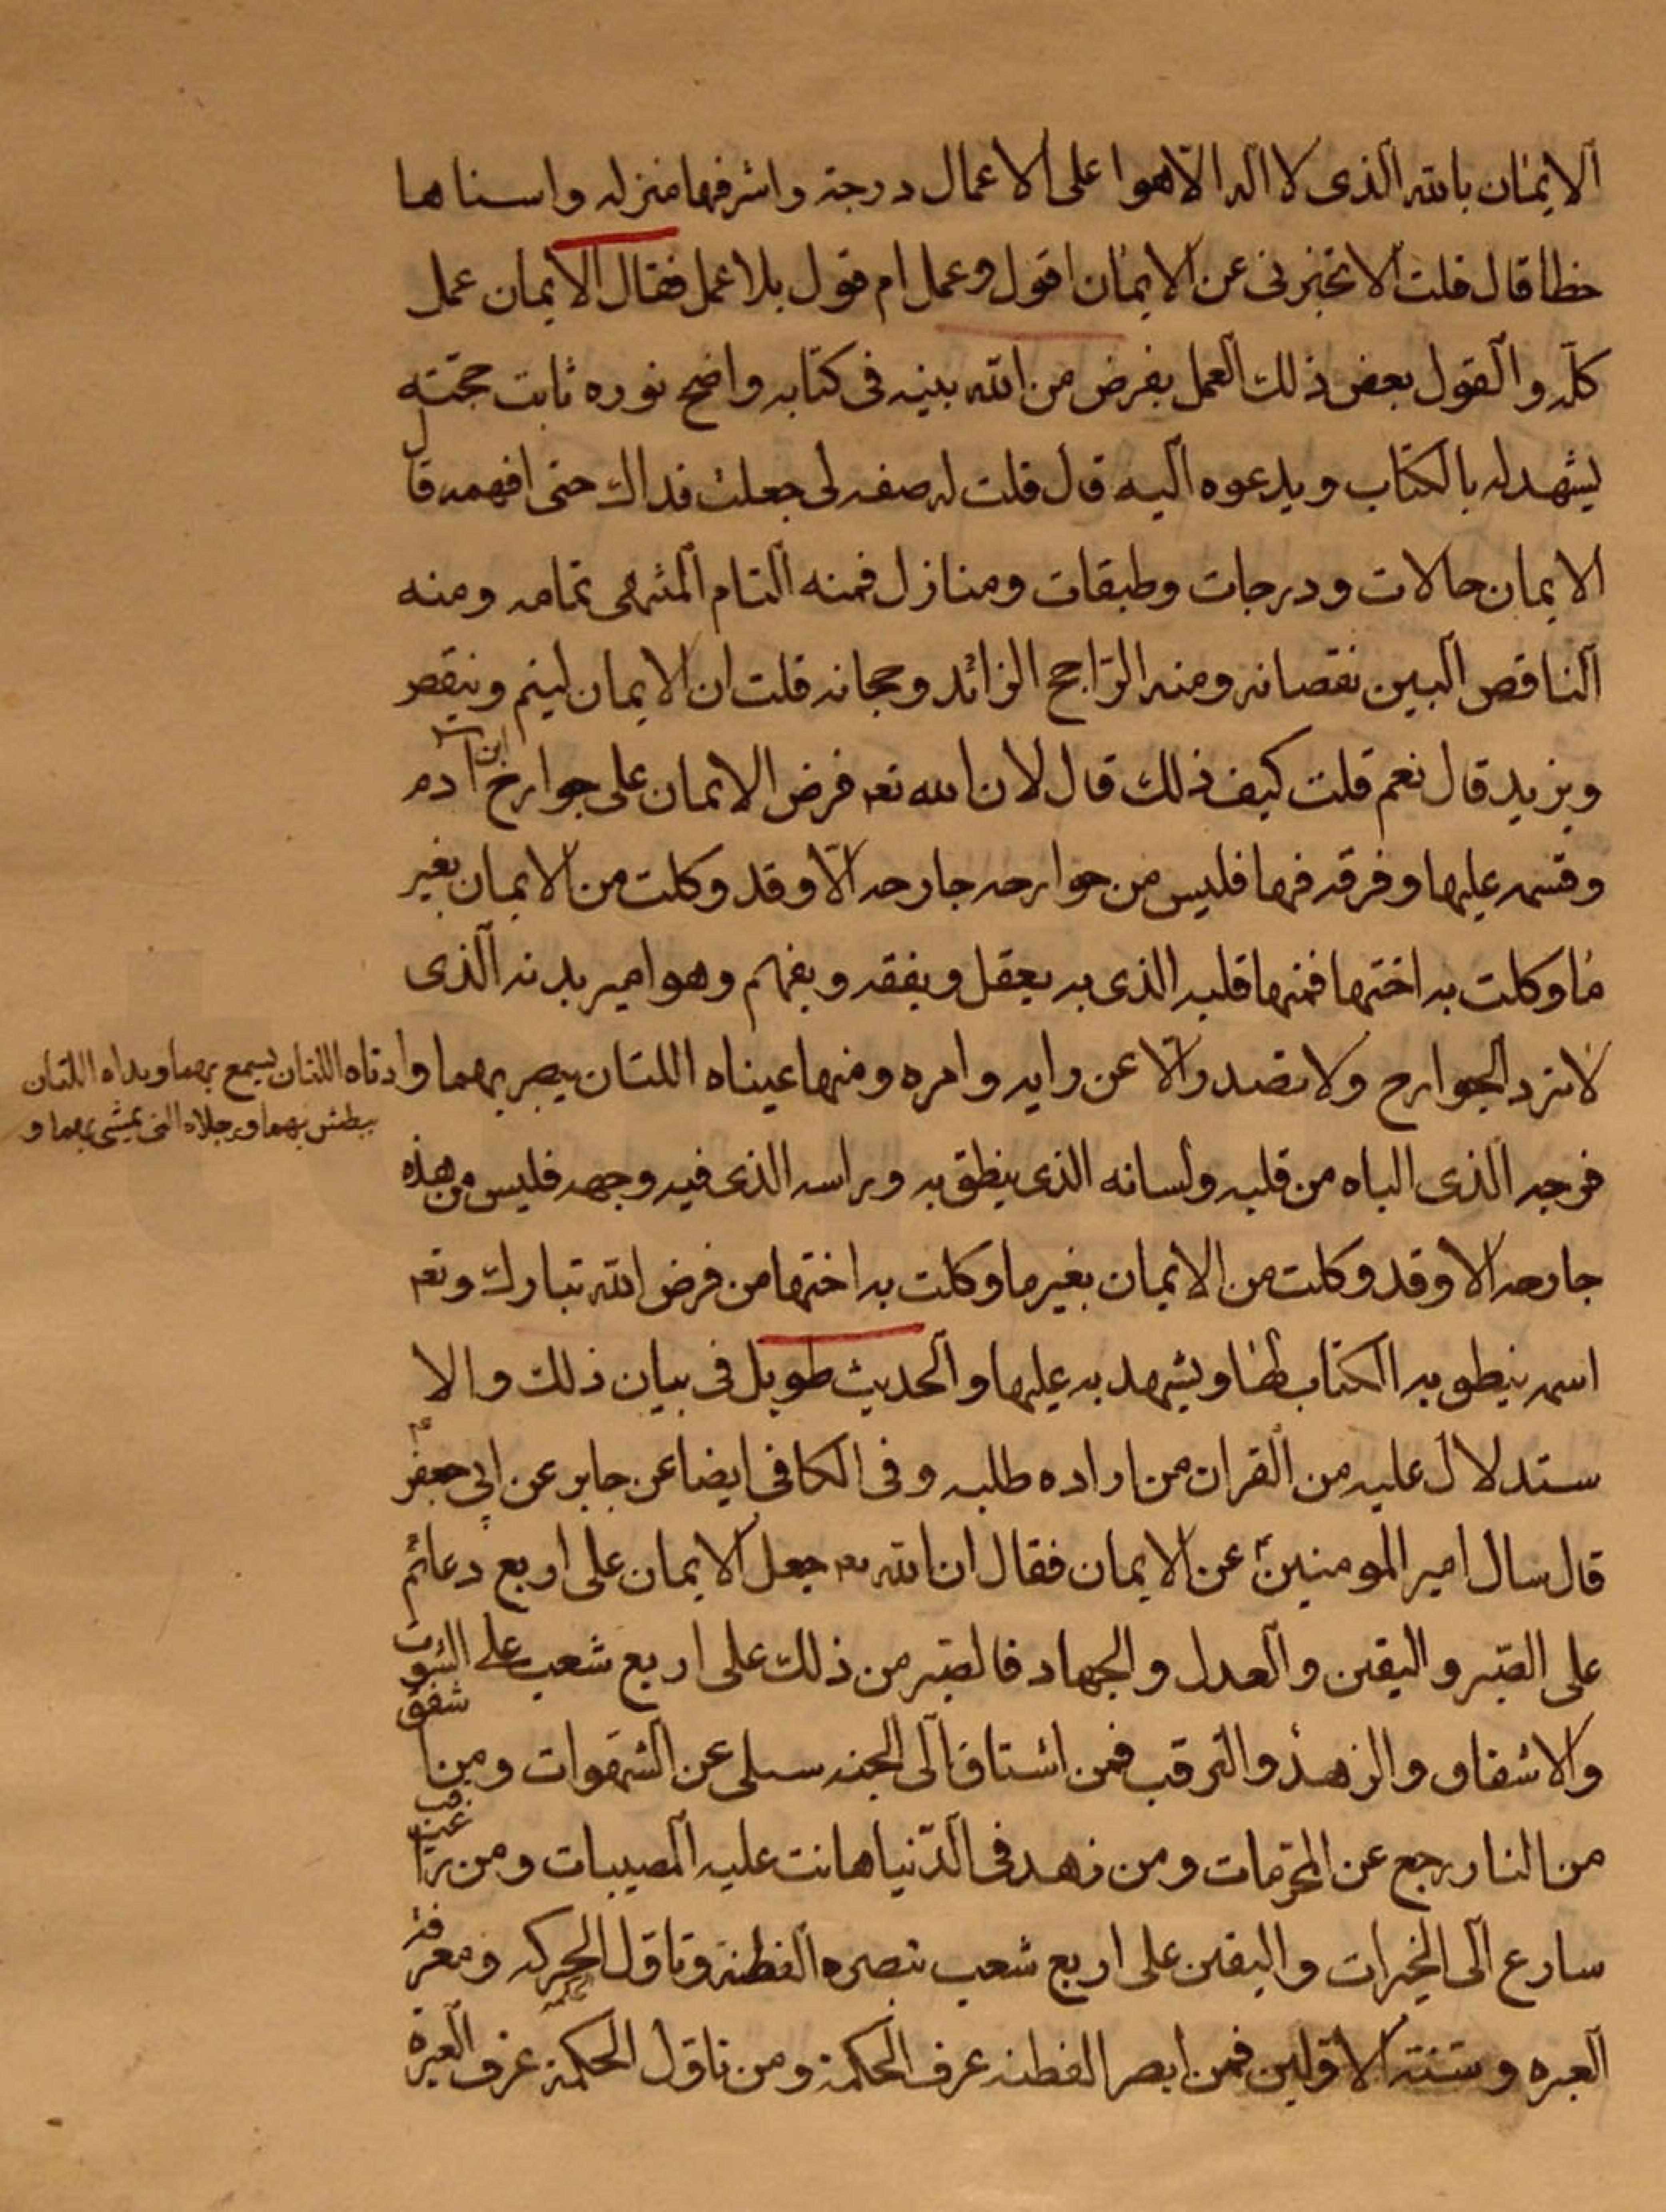 الايمان بالله الذى لا اله الا هو اعلى الاعمال درجة واشرفها منزله واسناها
حظا قال قلت الا تخبرنى عن الايمان اقول وعمل ام قول بلا عمل فقال الايمان عمل
كله والقول بعض ذلك العمل بفرض من الله بينه فى كتابه واضح نوره ثابت حجته
يشهد له بالكتاب ويدعوه اليه قال قلت له صفه لى جعلت فداك حتى افهمه قال
الايمان حالات ودرجات وطبقات ومنازل فمنه التام المنتهى تمامه ومنه
الناقص البين نقصانه ومنه الراجح الزائد وجحانه قلت ان الايمان ليتم وينقص
ويزيد قال نعم قلت كيف ذلك قال لان الله تعه فرض الايمان على جوارح ابن ادم
وقسمه عليها وفرقه فيها فليس من جوارحه جارحه الا وقد وكلت من الايمان بغير
ما وكلت به اختها فمنها قلبه الذى به يعقل ويفقه ويفهم وهو امير بدنه الذى
لا ترد الجوارح ولا تصدر الا عن رايه وامره ومنها عيناه اللتان يبصر بهما واذناه اللتان يسمع بهما ويداه اللتان
يبطش بهما ورجلاه التى يمشى بهما و
فرجه الذى الباه من قلبه ولسانه الذى ينطق به وراسه الذى فيه وجهه فليس من هذه
جارحه الا وقد وكلت من الايمان بغير ما وكلت به اختها من فرض الله تبارك وتعه
اسمه ينطق به الكتاب لها ويشهد به عليها والحديث طويل فى بيان ذلك والا
ستدلال عليه من القران من اراده طلبه وفى الكافى ايضا عن جابر عن ابى جعفر ع
قال سال امير المومنين ع عن الايمان فقال ان الله تعه جعل الايمان على اربع دعائم
على الصبر واليقين والعدل والجهاد فالصبر من ذلك على اربع شعب على الشوق
والاشفاق والزهد والترقب فمن اشتاق الى الجنه سلى عن الشهوات ومن اشفق
من النار رجع عن المحرمات ومن زهد فى الدنيا هانت عليه المصيبات ومن راقب
سارع الى الخيرات واليقين على اربع شعب تبصره الفطنة وتاول الحركه ومعرفة
العبره وسنة الاولين فمن ابصر الفطنه عرف الحكمة ومن تاول الحكمة عرف العبرة